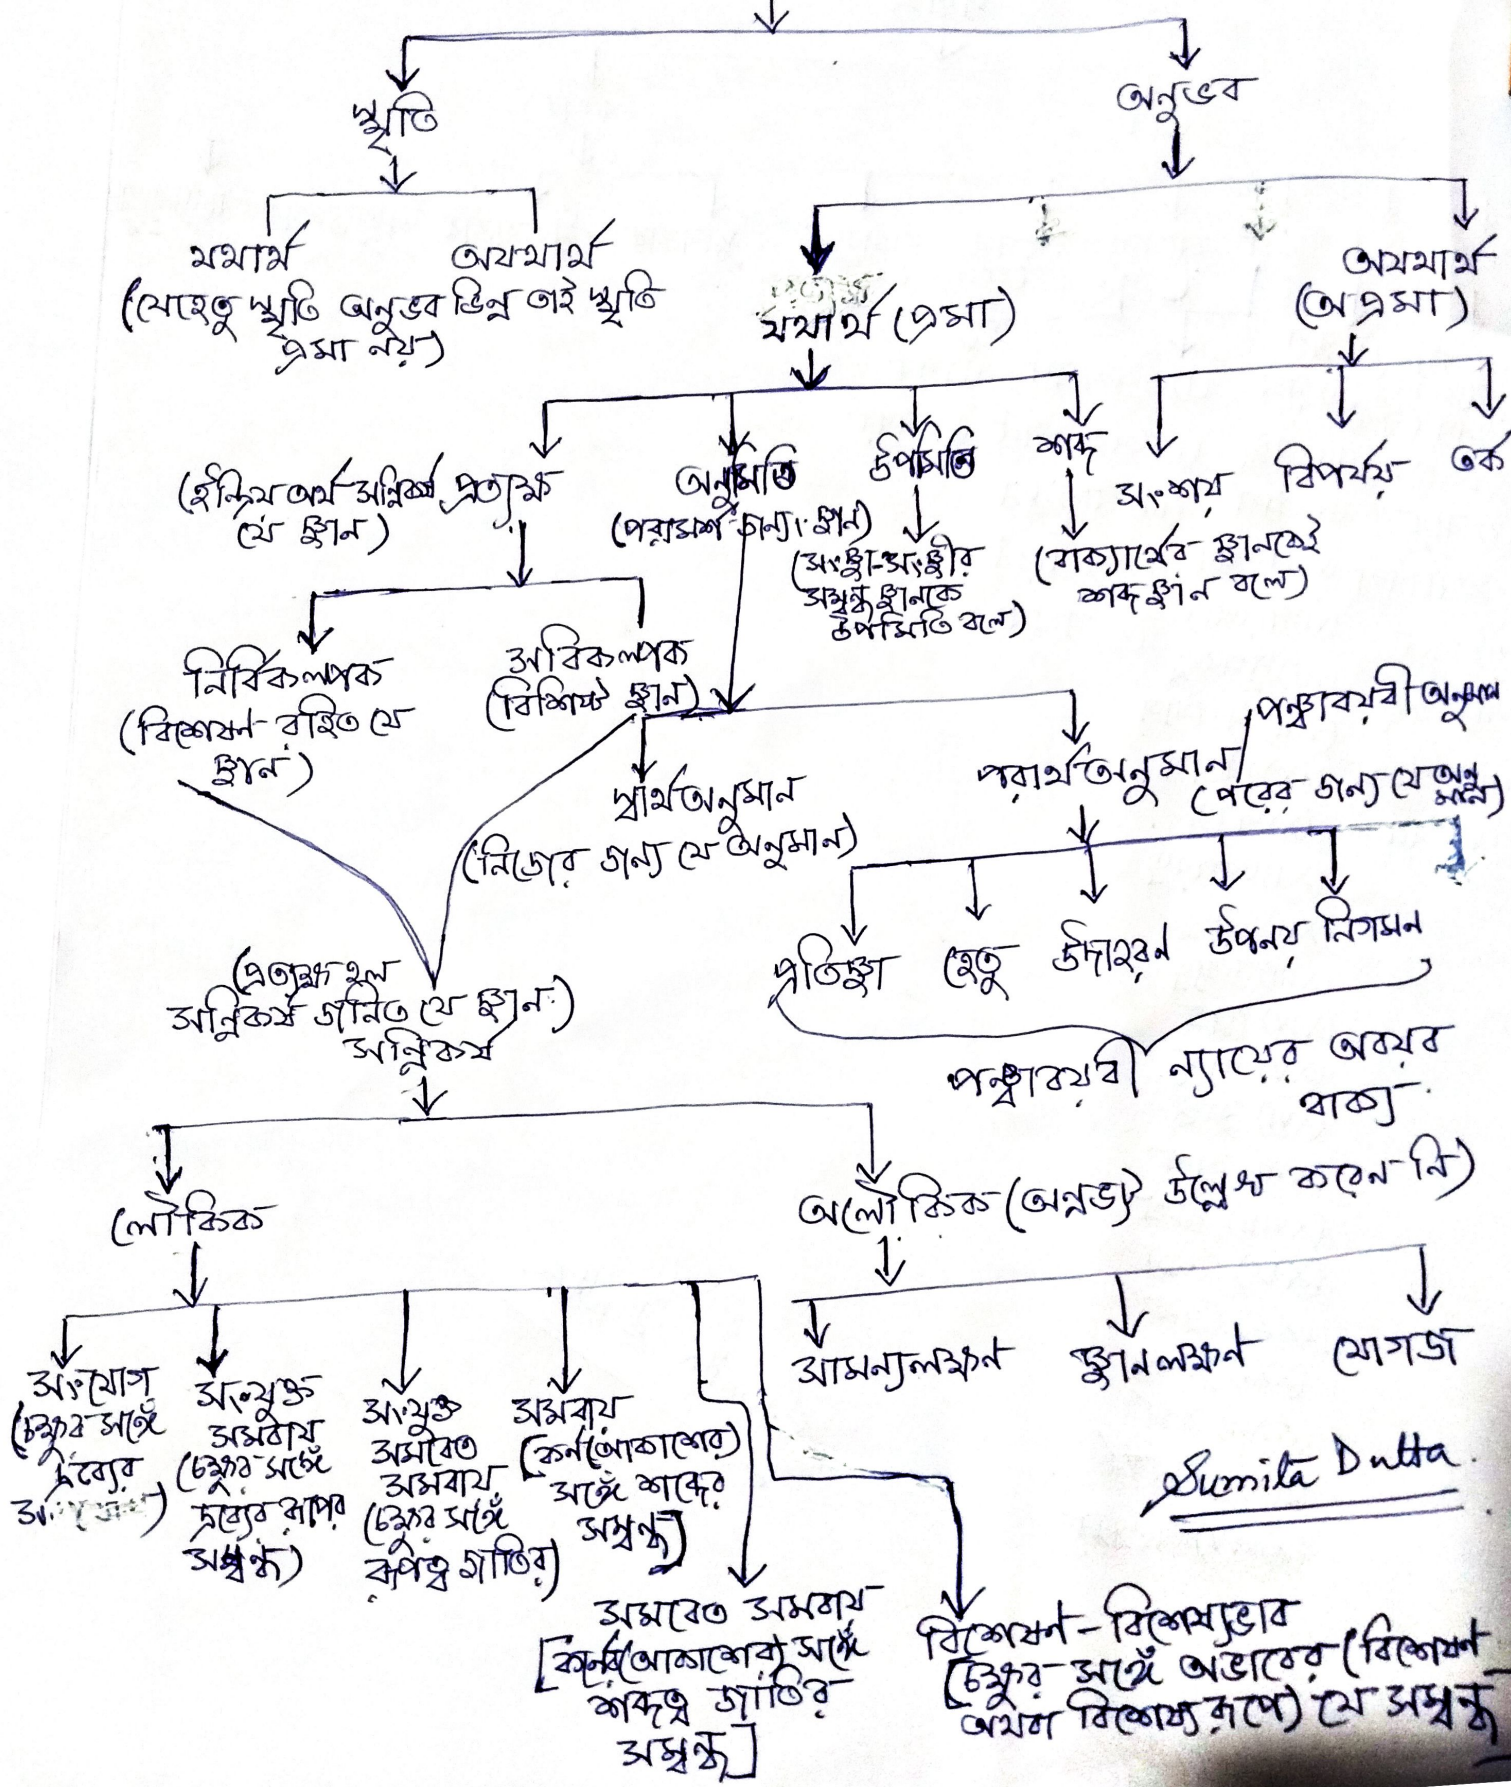 স্মৃতি
অনুভব
যথার্থ
অযথার্থ
(যেহেতু স্মৃতি অনুভব ভিন্ন তাই স্মৃতি
প্রমা নয়)
যথার্থ (প্রমা)
অযথার্থ
(অপ্রমা)
(ইন্দ্রিয় অর্থ সন্নিকর্ষ প্রত্যক্ষ
যে জ্ঞান)
অনুমিতি
(পরামর্শ জন্য জ্ঞান)
উপমিতি
(সংজ্ঞা-সংজ্ঞীর
সম্বন্ধ জ্ঞানকে
উপমিতি বলে)
শব্দ
(বাক্যার্থের জ্ঞানকেই
শব্দ জ্ঞান বলে)
সংশয়
বিপর্যয়
তর্ক
নির্বিকল্পক
(বিশেষণ রহিত যে
জ্ঞান)
সবিকল্পক
(বিশিষ্ট জ্ঞান)
স্বার্থঅনুমান
(নিজের জন্য যে অনুমান)
পরার্থঅনুমান/
পঞ্চাবয়বী অনুমান
(পরের জন্য যে অনু
মান)
প্রতিজ্ঞা
হেতু
উদাহরন
উপনয়
নিগমন
পঞ্চাবয়বী ন্যায়ের অবয়ব
বাক্য
(প্রত্যক্ষ হল
সন্নিকর্ষ জনিত যে জ্ঞান)
সন্নিকর্ষ
লৌকিক
অলৌকিক (অন্নভট্ট উল্লেখ করেন নি)
সংযোগ
(চক্ষুর সঙ্গে
দ্রব্যের
সংযুক্ত
সমবায়
(চক্ষুর সঙ্গে
দ্রব্যের রূপের
সম্বন্ধ)
সংযুক্ত
সমবেত
সমবায়
(চক্ষুর সঙ্গে
রূপত্ব জাতির)
সমবায়
[কর্ন(আকাশের)
সঙ্গে শব্দের
সম্বন্ধ]
সমবেত সমবায়
[কর্নের(আকাশের) সঙ্গে
শব্দত্ব জাতির
সম্বন্ধ]
বিশেষণ-বিশেষ্যভাব
[চক্ষুর সঙ্গে অভাবের (বিশেষণ
অথবা বিশেষ্য রূপে) যে সম্বন্ধ
সামন্যলক্ষণ
জ্ঞানলক্ষণ
যোগজ
Sumita Dutta